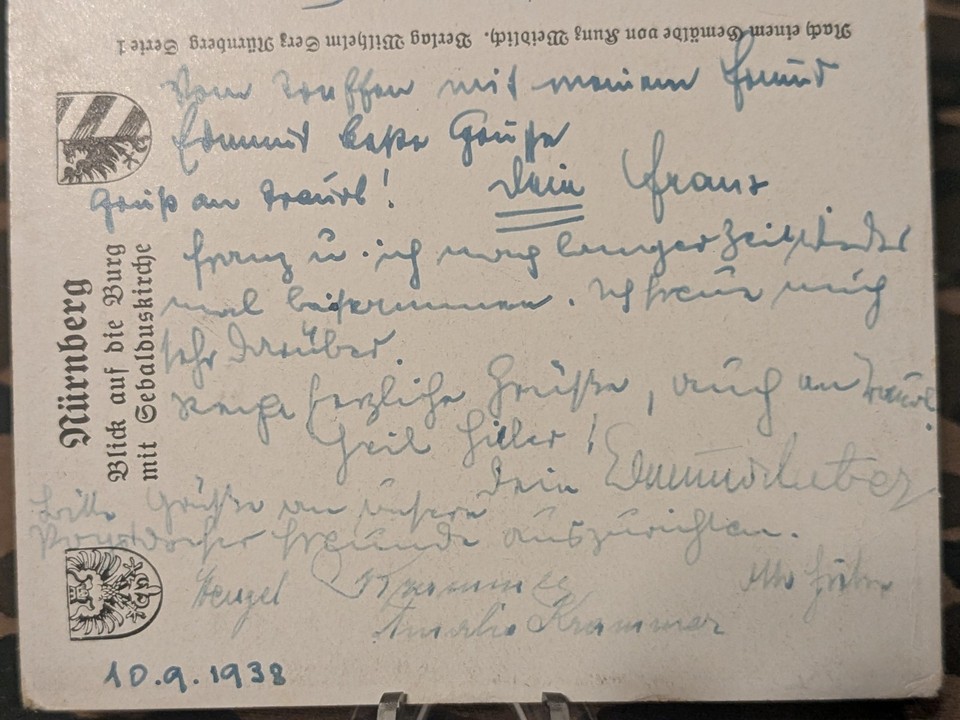 Nach einem Gemälde von Kunz Weidlich. Verlag Wilhelm Gerz Nürnberg Serie 1
Vom Treffen mit meinem Freund
Edmund beste Grüße
Dein Franz
Gruß an Traudl!
Franz u. ich nach langer Zeit wieder
mal beisammen. Ich freue mich
sehr darüber.
Recht herzliche Grüße, auch an Traudl.
Heil Hitler!
Dein Edmund Huber
Bitte Grüße an unsere
Freunde auszurichten.
Wenzel Krammer
Amalie Krammer
Otto
10.9.1938
Nürnberg
Blick auf die Burg
mit Sebalduskirche